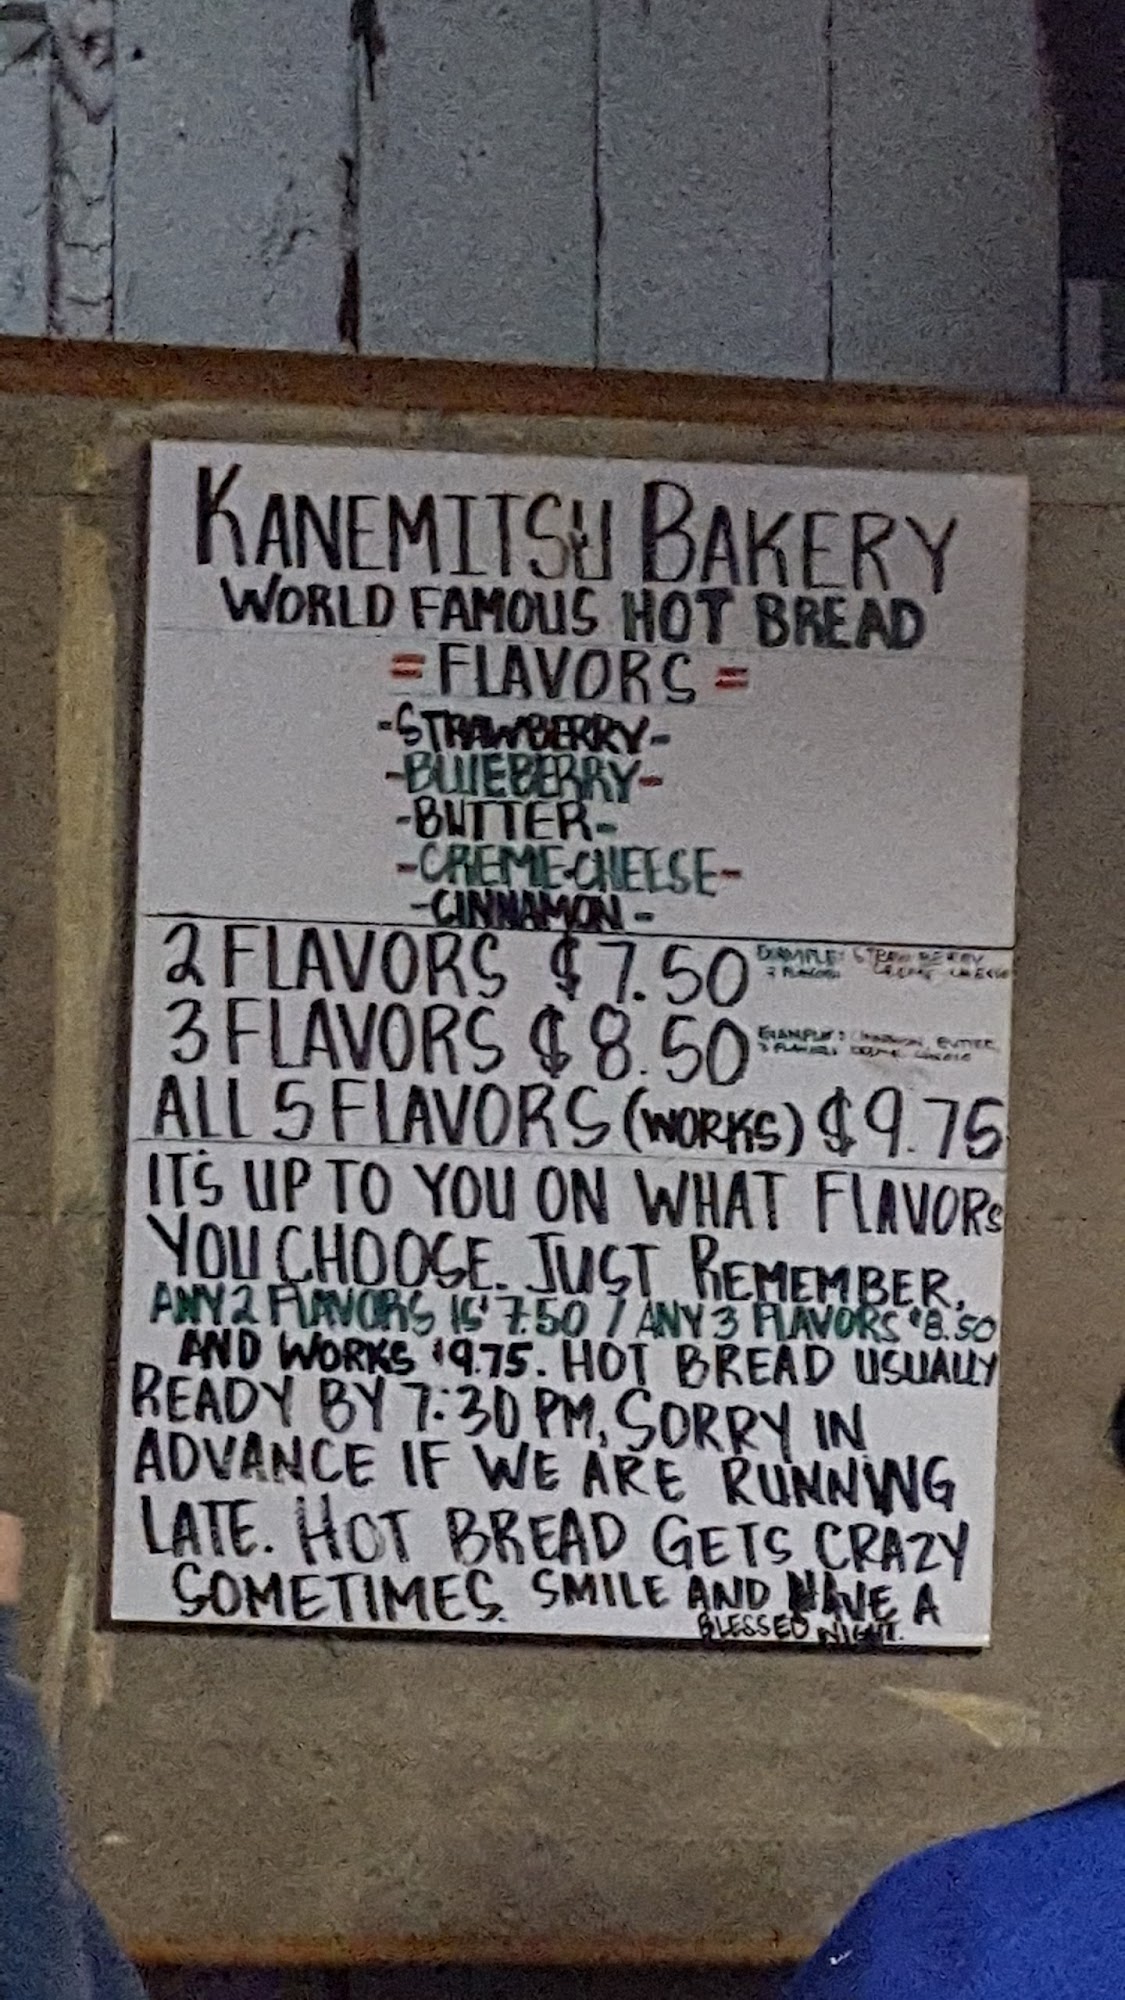 KANEMITSU BAKERY
WORLD FAMOUS HOT BREAD
= FLAVORS =
-STRAWBERRY-
-BLUEBERRY-
-BUTTER-
-CREME-CHEESE-
-CINNAMON-
2 FLAVORS $7.50
EXAMPLE: STRAWBERRY
2 FLAVORS CREME CHEESE
3 FLAVORS $8.50
EXAMPLE: CINNAMON, BUTTER,
3 FLAVORS CREME CHEESE
ALL 5 FLAVORS (WORKS) $9.75
IT'S UP TO YOU ON WHAT FLAVORS
YOU CHOOSE. JUST REMEMBER,
ANY 2 FLAVORS IS 7.50 / ANY 3 FLAVORS $8.50
AND WORKS $9.75. HOT BREAD USUALLY
READY BY 7:30 PM, SORRY IN
ADVANCE IF WE ARE RUNNING
LATE. HOT BREAD GETS CRAZY
SOMETIMES. SMILE AND HAVE A
BLESSED NIGHT.